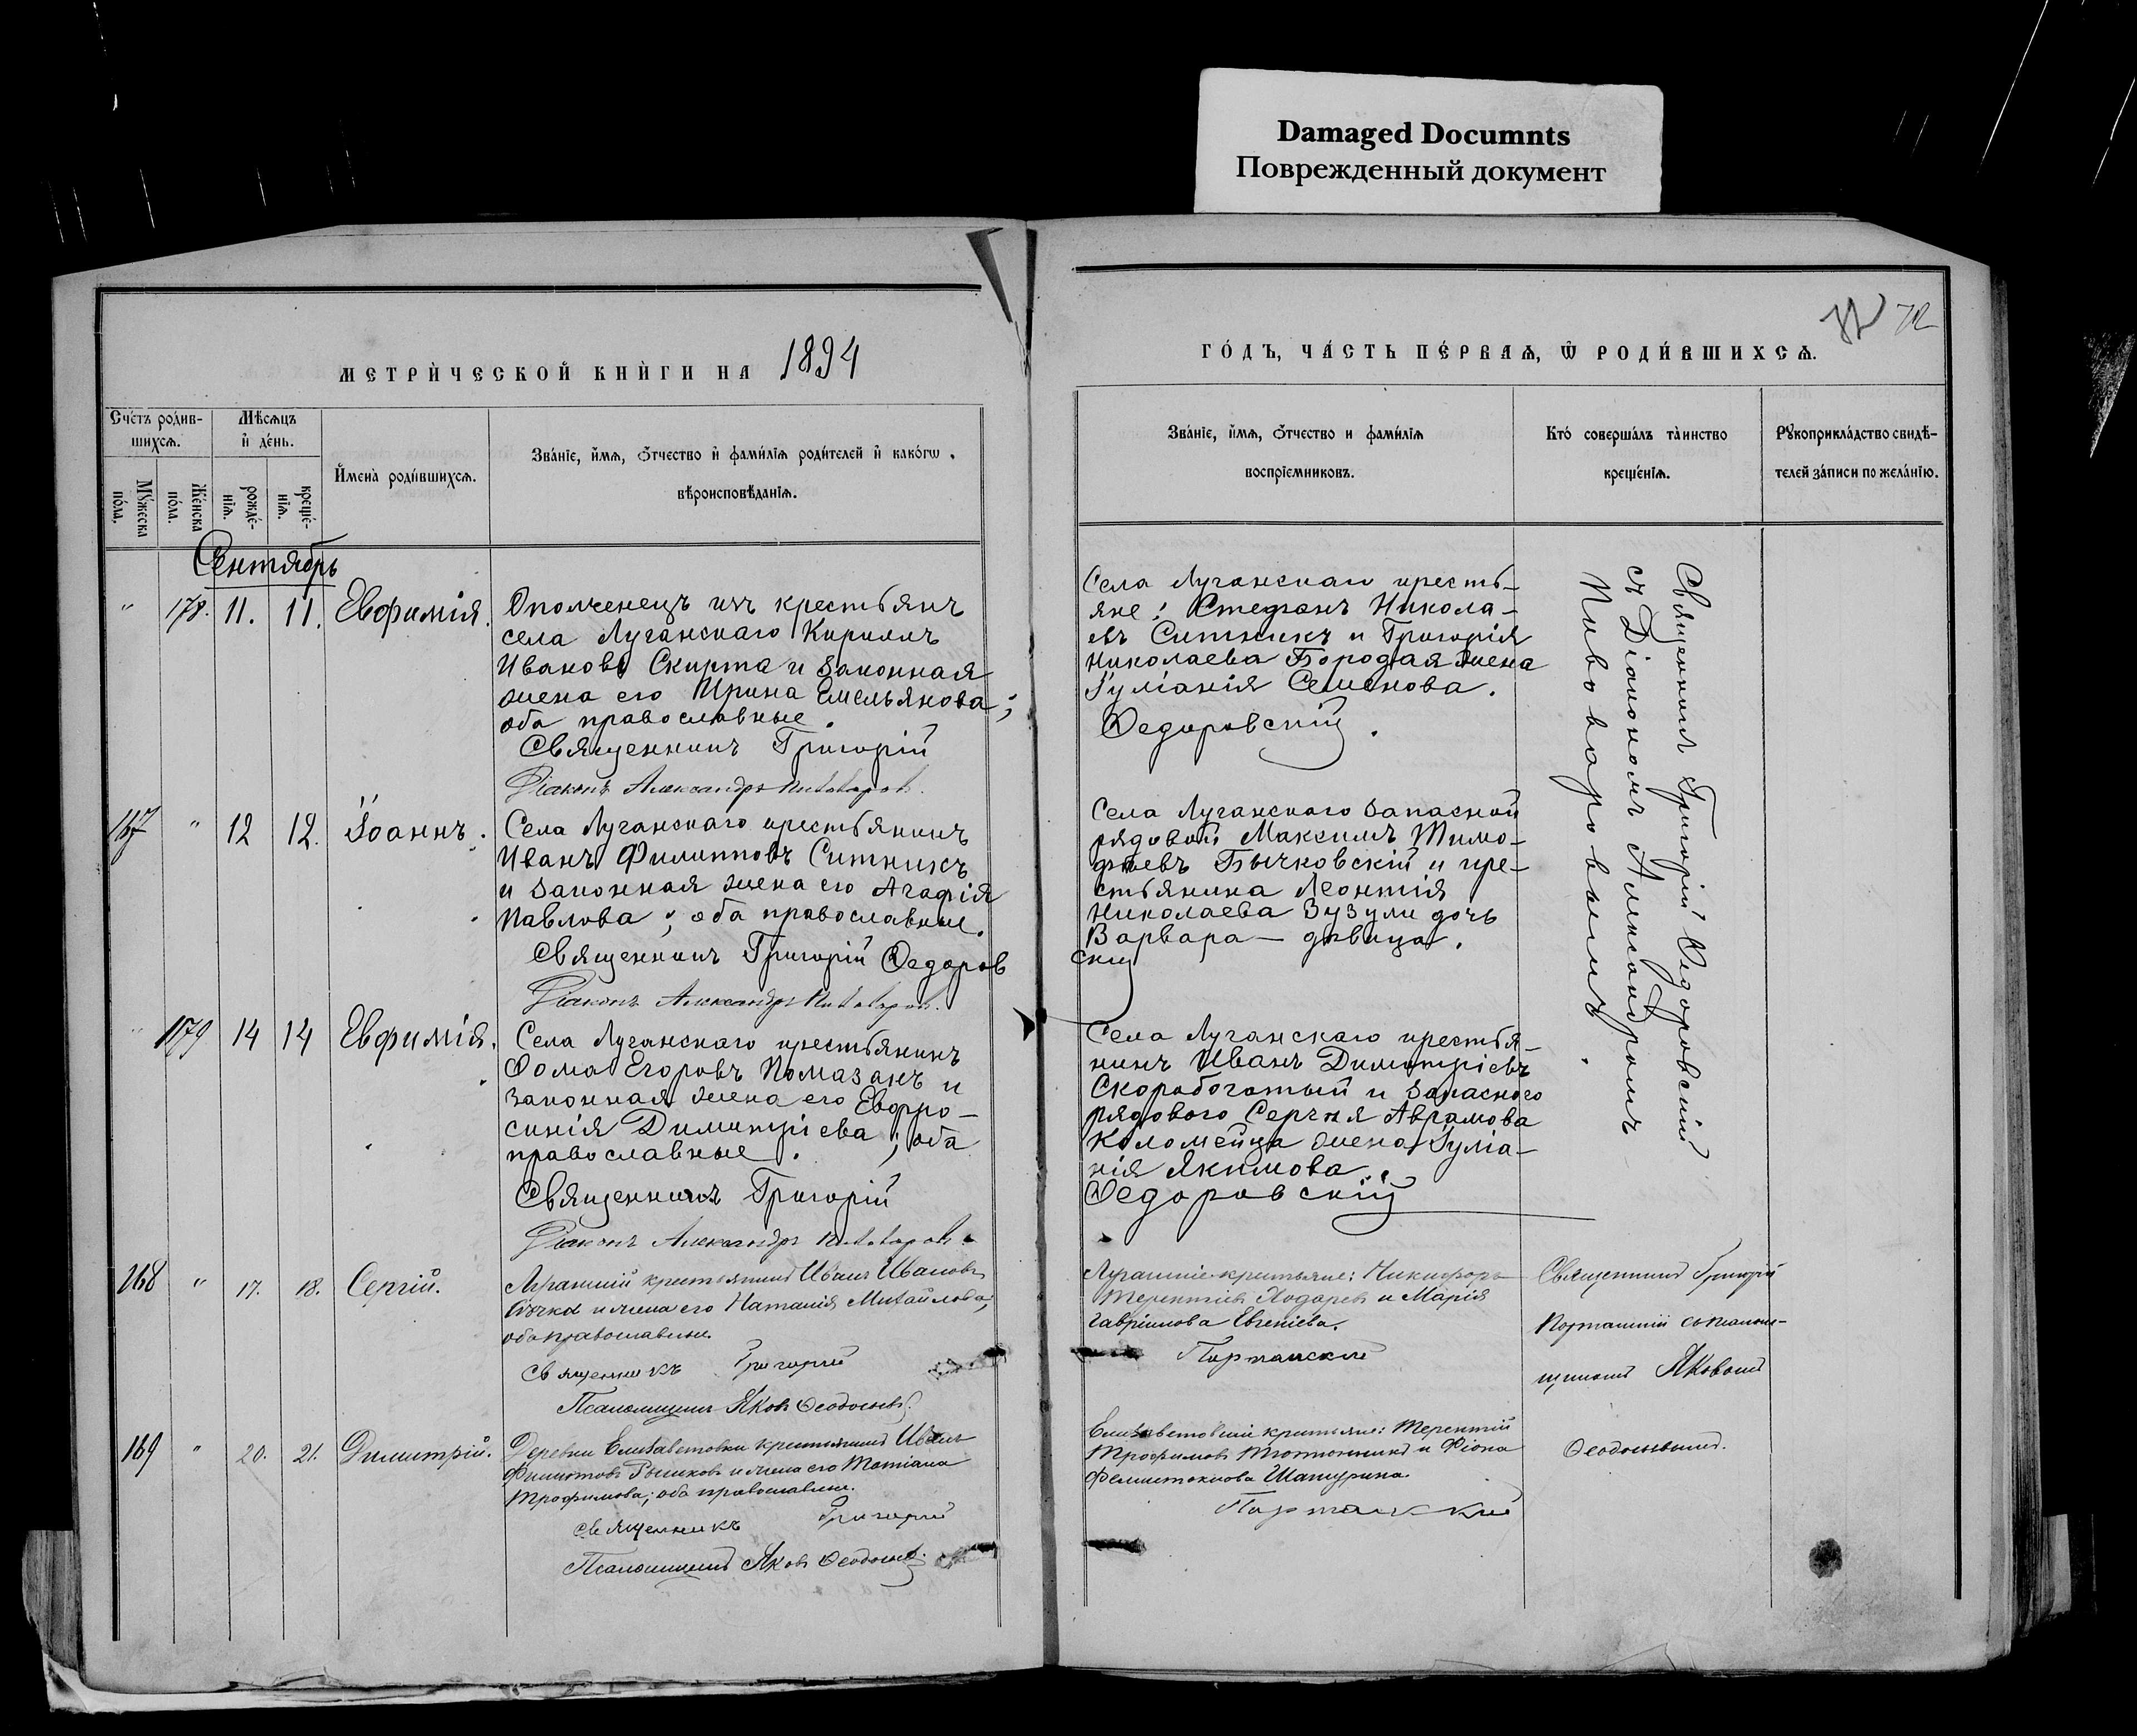 Damaged Documnts
Поврежденный документ
72
МЕТРИ́ЧЕСКОЙ КНИ́ГИ НА 1894
ГО́ДЪ, ЧА́СТЬ ПЕ́РВАѦ, Ѿ РОДИ́ВШИХСѦ.
Сче́тъ роди́в-
шихсѧ.
Мѣ́сѧцъ
и҆ де́нь.
И҆мена̀ роди́вшихсѧ.
Зва́нїе, и҆́мѧ, ѻ҆́тчество и҆ фами́лїѧ роди́телей и҆ како́гѡ
вѣроисповѣ́данїѧ.
Мꙋ́жеска
по́ла.
Же́нска
по́ла.
рожде́-
нїѧ.
креще́-
нїѧ.
Зва́нїе, и҆́мѧ, ѻ҆́тчество и фами́лїѧ
воспрїе́мниковъ.
Кто́ соверша́лъ та́инство
креще́нїѧ.
Рꙋкоприкла́дство свидѣ́-
телей за́писи по жела́нїю.
Сентябрь
" 178. 11. 11. Евфимія.
Ополченецъ изъ крестьянъ
села Луганскаго Кириллъ
Ивановъ Скирта и законная
жена его Ирина Емельянова;
оба православные.
Священникъ Григорій
Діаконъ Александръ Пивоваровъ.
Села Луганскаго кресть-
яне: Стефанъ Никола-
евъ Ситникъ и Григорія
Николаева Бородая жена
Іуліанія Семенова.
Ѳедоровскій.
Священникъ Григорій Ѳедоровскій
съ Діакономъ Александромъ
Пивоваровымъ.
167 " 12 12. Іоаннъ.
Села Луганскаго крестьянинъ
Иванъ Филипповъ Ситникъ
и законная жена его Агафія
Павлова; оба православные.
Священникъ Григорій Ѳедоров
Діаконъ Александръ Пивоваровъ.
Села Луганскаго запасной
рядовой Максимъ Тимо-
фѣевъ Бычковскій и кре-
стьянина Леонтія
Николаева Зузули дочь
Варвара — дѣвица.
скій
" 179 14 14 Евфимія.
Села Луганскаго крестьянинъ
Ѳома Егоровъ Помазанъ и
законная жена его Евфро-
синія Димитріева; оба
православные.
Священникъ Григорій
Діаконъ Александръ Пивоваровъ.
Села Луганскаго крестья-
нинъ Иванъ Димитріевъ
Скоробогатый и запаснаго
рядового Сергѣя Аврамова
Коломейца жена Іуліа-
нія Якимова.
Ѳедоровскій
168 " 17. 18. Сергій.
крестьянинъ Иванъ Ивановъ
Бычка и жена его Наталія Михайлова;
оба православные.
Священникъ Григорій
Псаломщикъ Яковъ Ѳеодосьевъ.
крестьяне: Никифоръ
Терентіевъ Лодаревъ и Марія
Гавріилова Евгеніева.
Портанскій
Священникъ Григорій
Портанскій съ псалом-
щикомъ Яковомъ
Ѳеодосьевымъ.
169 " 20. 21. Димитрій.
Деревни Елизаветовки крестьянинъ Иванъ
Филиповъ Рышковъ и жена его Татіана
Трофимова; оба православные.
Священникъ Григорій
Псаломщикъ Яковъ Ѳеодосьевъ.
Елизаветовскіе крестьяне: Терентій
Трофимовъ Тютюнникъ и Фіона
Шатурина.
Портанскій